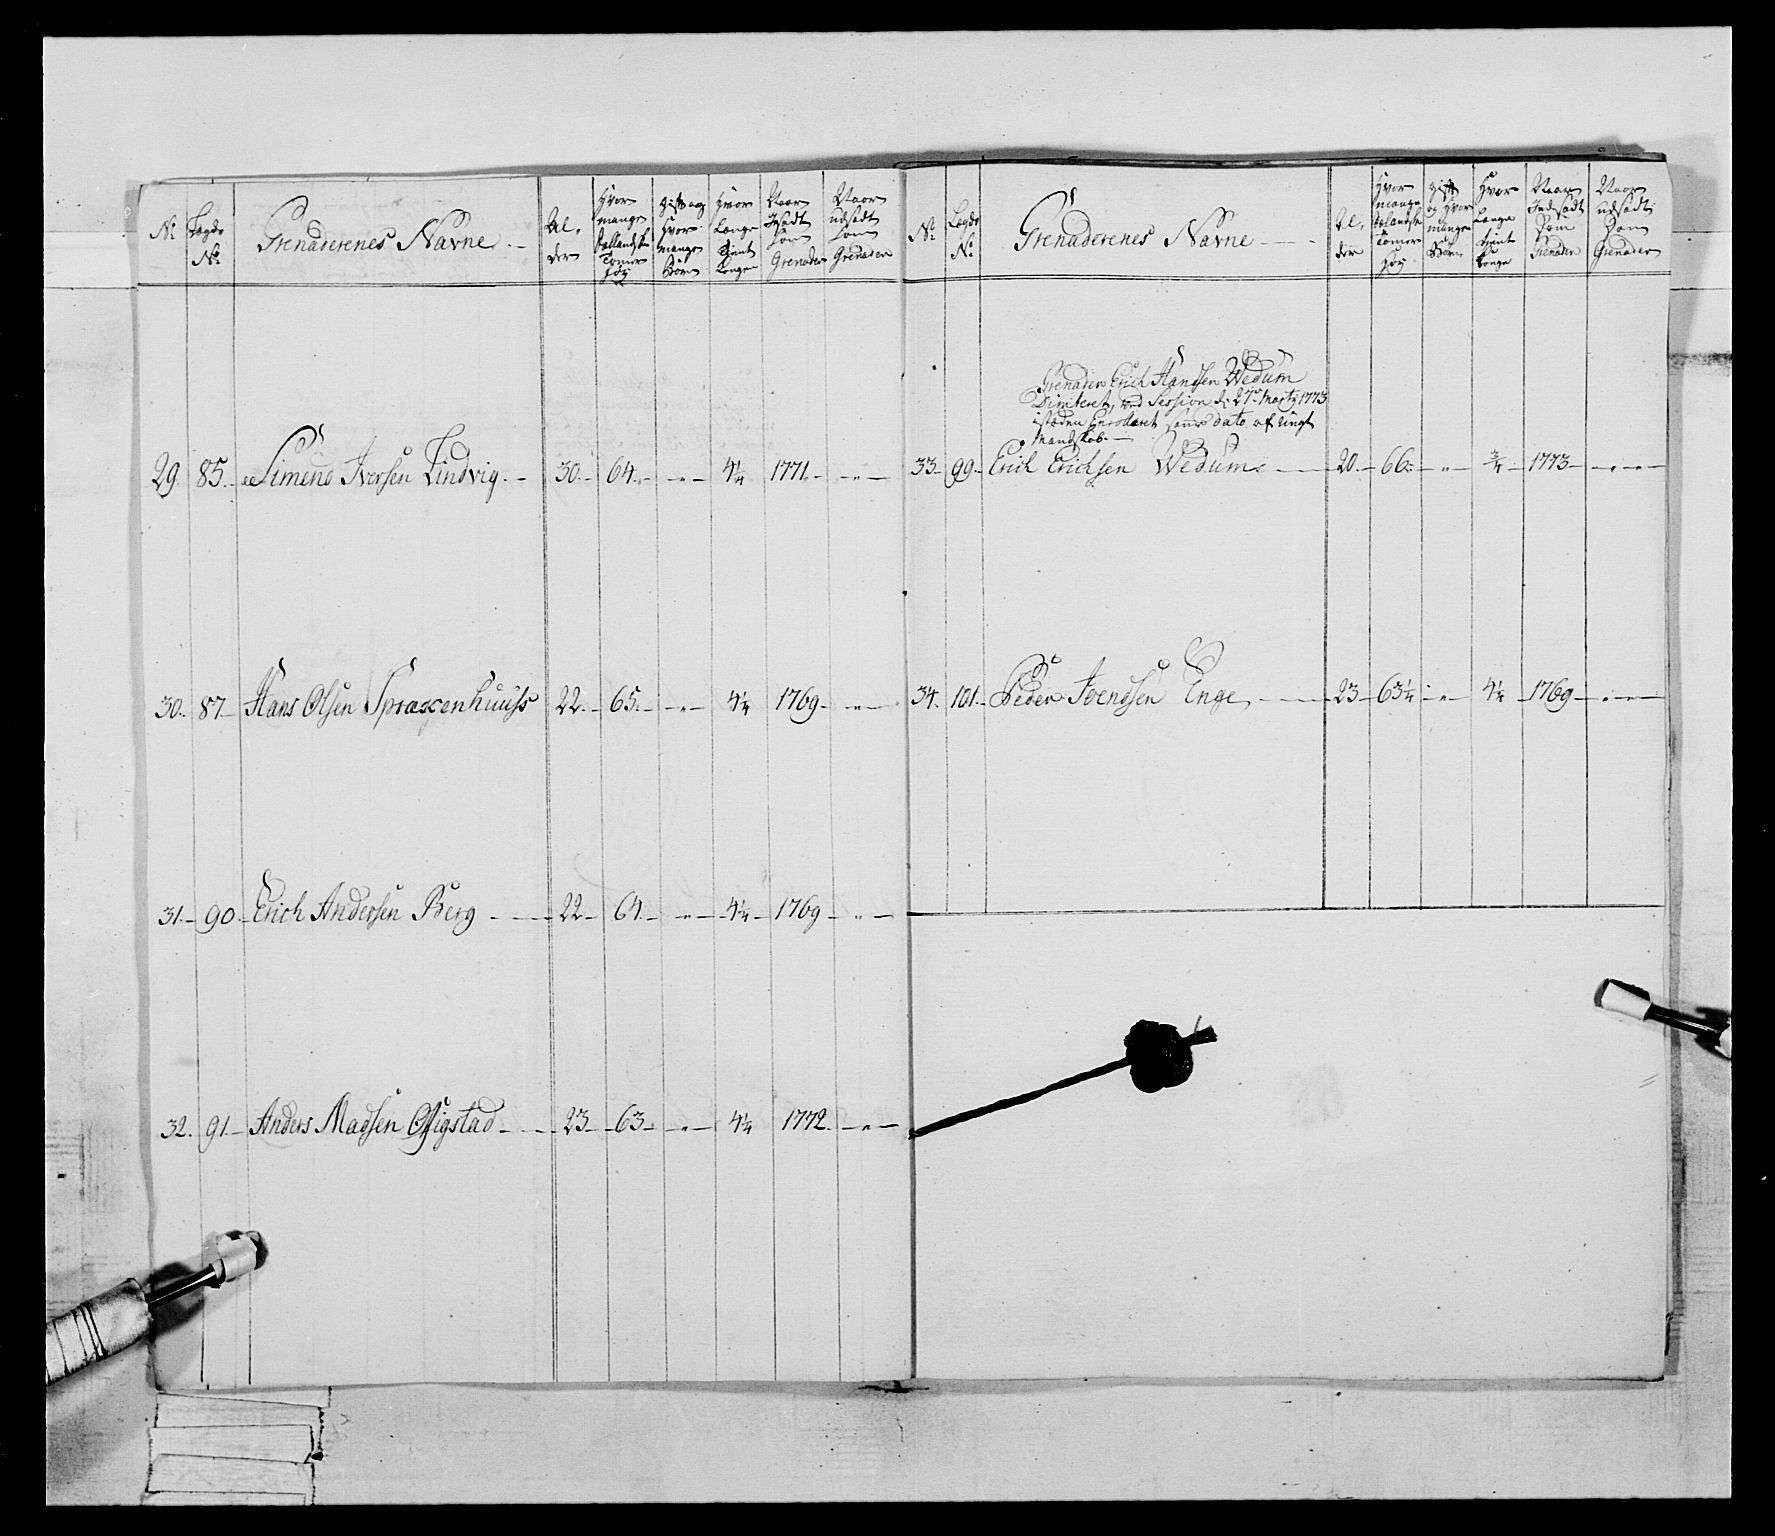 No
Lægds No
Grenaderenes Navne
Al,der
Hvor mange Hollandske Tommer Høy
gift og hvor mange Børn
Hvor Længe Tient Konge
Naar Indsadt som Grenader
Naar udsadt som Grenader
29. 85. Simend Iversen Lindvig. 30. 64. " 4¼ 1771. "
30. 87 Hans Olsen Spraxenhuuss 22. 65. " 4¼ 1769 "
31. 90. Erich Andersen Berg 22 64 " 4¼ 1769 "
32. 91. Anders Madsen Ofigstad 23 63 " 4¼ 1772 "
No
Lægds No
Grenaderenes Navne
Al,der
Hvor mange Hollandske Tomer Høy
gift og Hvor mange Børn
Hvor Længe tient Konge
Naar Indsadt som Grenader
Naar udsadt som Grenader
Grenader Erich Hanssen Wedum
Dimiteret, ved Session d: 27de Marty 1773
istæden Enrolleret samme dato af ungt
Mandskab.
33 99 Erich Erichsen Wedum 20. 66 " ¾ 1773 "
34. 101. Peder Svendsen Enge 23 63¼ " 4¼ 1769 "